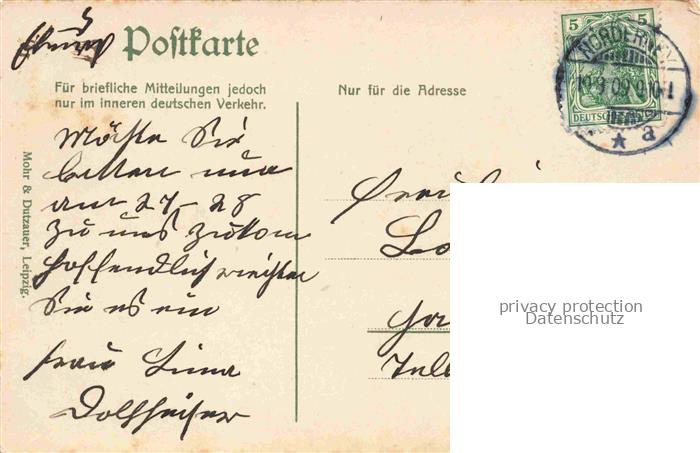 Postkarte
Für briefliche Mitteilungen jedoch
nur im inneren deutschen Verkehr.
Nur für die Adresse
5 5
NORDERNEY
DEUTSCHES
a
Mohr & Dutzauer, Leipzig.
Möchte Sie
bitten nur
am 27-28
zu uns zukom
hoffendlich richten
Sie es ein
Frau Lina
Fräulein
privacy protection
Datenschutz